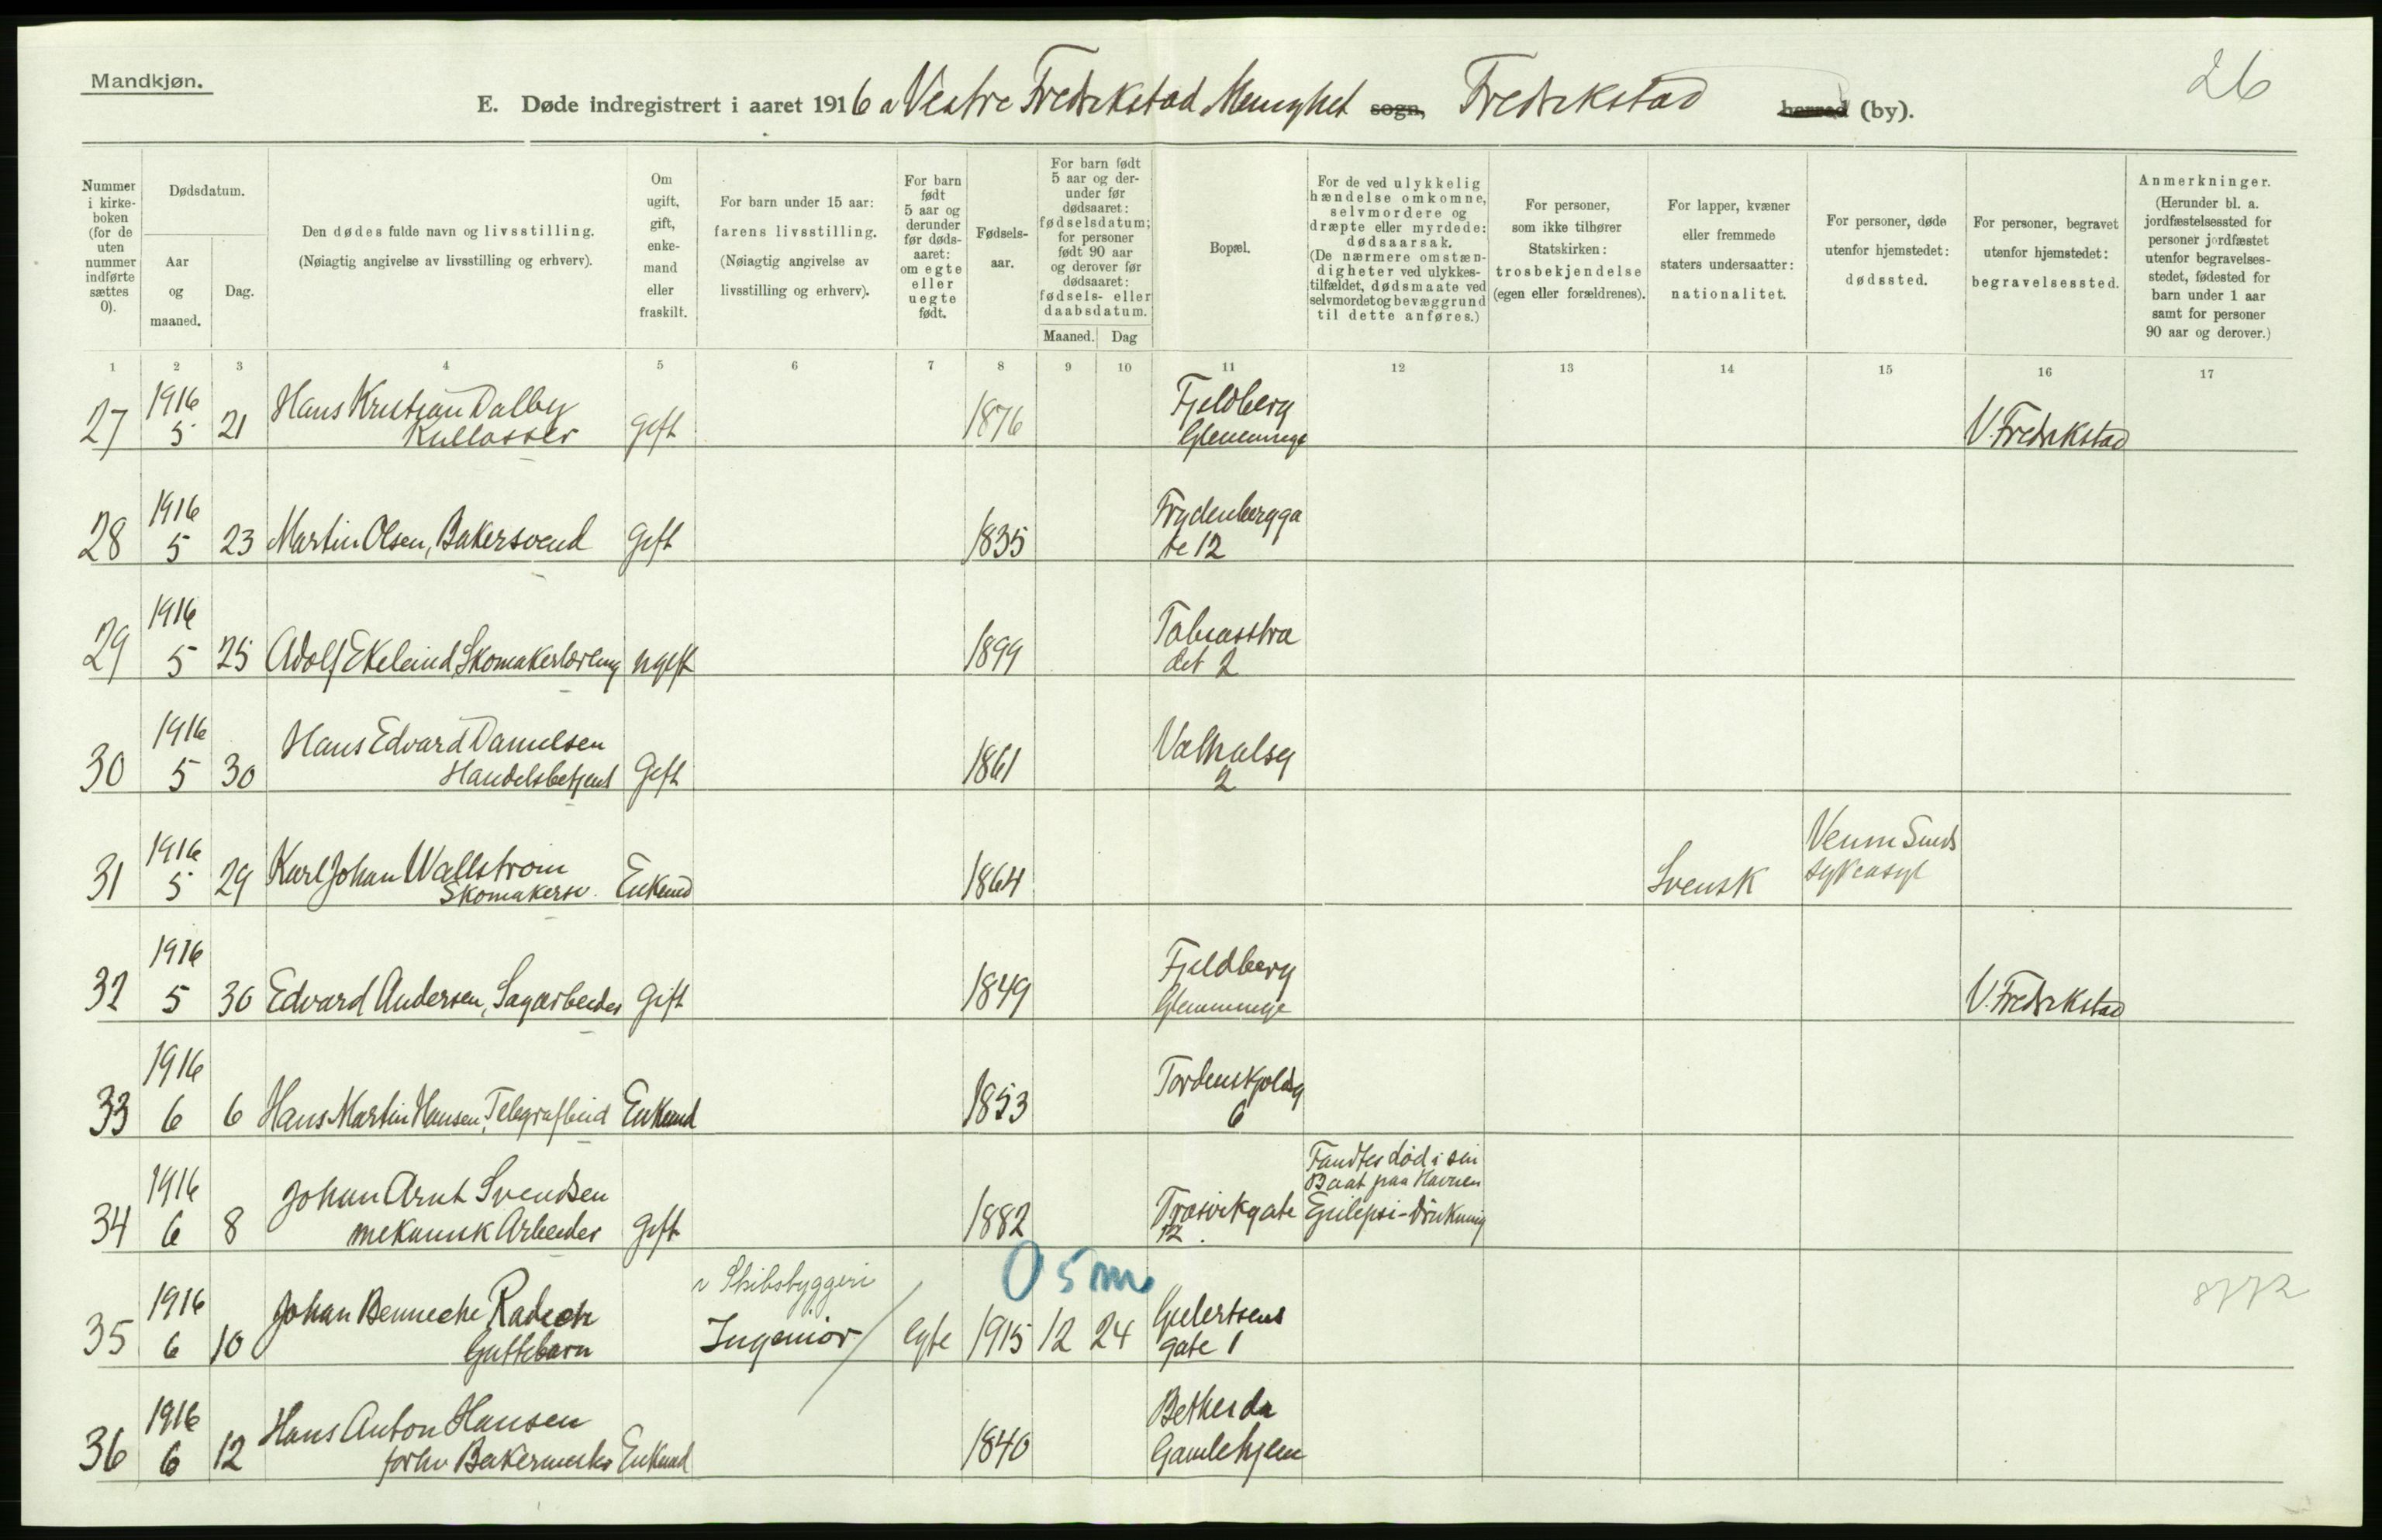 Mandkjøn.
26
E. Døde indregistrert i aaret 1916 i Vestre Fredrikstad Menighet sogn, Fredrikstad herred (by).
Nummer i kirkeboken (for de uten nummer indførte sættes 0).
Dødsdatum.
Aar og maaned.
Dag.
Den dødes fulde navn og livsstilling.
(Nøiagtig angivelse av livsstilling og erhverv).
Om ugift, gift, enkemand eller fraskilt.
For barn under 15 aar: farens livsstilling.
(Nøiagtig angivelse av livsstilling og erhverv).
For barn født 5 aar og derunder før dødsaaret: om egte eller uegte født.
Fødselsaar.
For barn født 5 aar og derunder før dødsaaret: fødselsdatum; for personer født 90 aar og derover før dødsaaret: fødsels- eller daabsdatum.
Maaned.
Dag
Bopæl.
For de ved ulykkelig hændelse omkomne, selvmordere og dræpte eller myrdede: dødsaarsak.
(De nærmere omstændigheter ved ulykkestilfældet, dødsmaate ved selvmordet og bevæggrund til dette anføres.)
For personer, som ikke tilhører Statskirken: trosbekjendelse (egen eller forældrenes).
For lapper, kvæner eller fremmede staters undersaatter: nationalitet.
For personer, døde utenfor hjemstedet: dødssted.
For personer, begravet utenfor hjemstedet: begravelsessted.
Anmerkninger.
(Herunder bl. a. jordfæstelsessted for personer jordfæstet utenfor begravelsesstedet, fødested for barn under 1 aar samt for personer 90 aar og derover.)
1 2 3 4 5 6 7 8 9 10 11 12 13 14 15 16 17
1916 Hans Kristian Dalby Fjeldberg
27 5 21 Kullosser gift 1876 Glemminge V. Fredrikstad
1916 Frydenbergga
28 5 23 Martin Olsen, Bakersvend Gift 1835 te 12
1916 Tobiasstra
29 5 25 Adolf Ekelund, Skomakerlærling ugift 1899 det 2
1916 Hans Edvard Danielsen Valhalsg
30 5 30 Handelsbetjent Gift 1861 2
1916 Karl Johan Wallstrøm Venn Sinds
31 5 29 Skomakersv. Enkemd 1864 Svensk sykeasyl
1916 Fjeldberg
32 5 30 Edvard Andersen, Sagarbeider Gift 1849 Glemminge V. Fredrikstad
1916 Tordenskjoldsg
33 6 6 Hans Martin Hansen, Telegrafbud Enkemd 1853 6
Fandtes død i sin
Baat paa Havnen
1916 Johan Arnt Svendsen Trosvikgate Epilepsi-Drukning
34 6 8 mekanisk Arbeider gift 1882 12.
0 5 m
i Skibsbyggeri
1916 Johan Benneche Radich Gulertsens 8772
35 6 10 Guttebarn Ingeniør egte 1915 12 24 gate 1
1916 Hans Anton Hansen Bethesda
36 6 12 forhv Bakermester Enkemd 1840 Gamlehjem